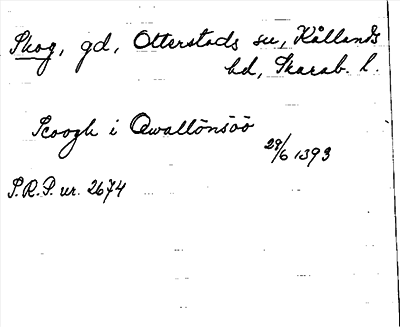 Skog, gd, Otterstads sn, Kållands
hd, Skarab. l.
Scoogh i Qwallönsöö
29/6 1393
S.R.P. nr. 2674